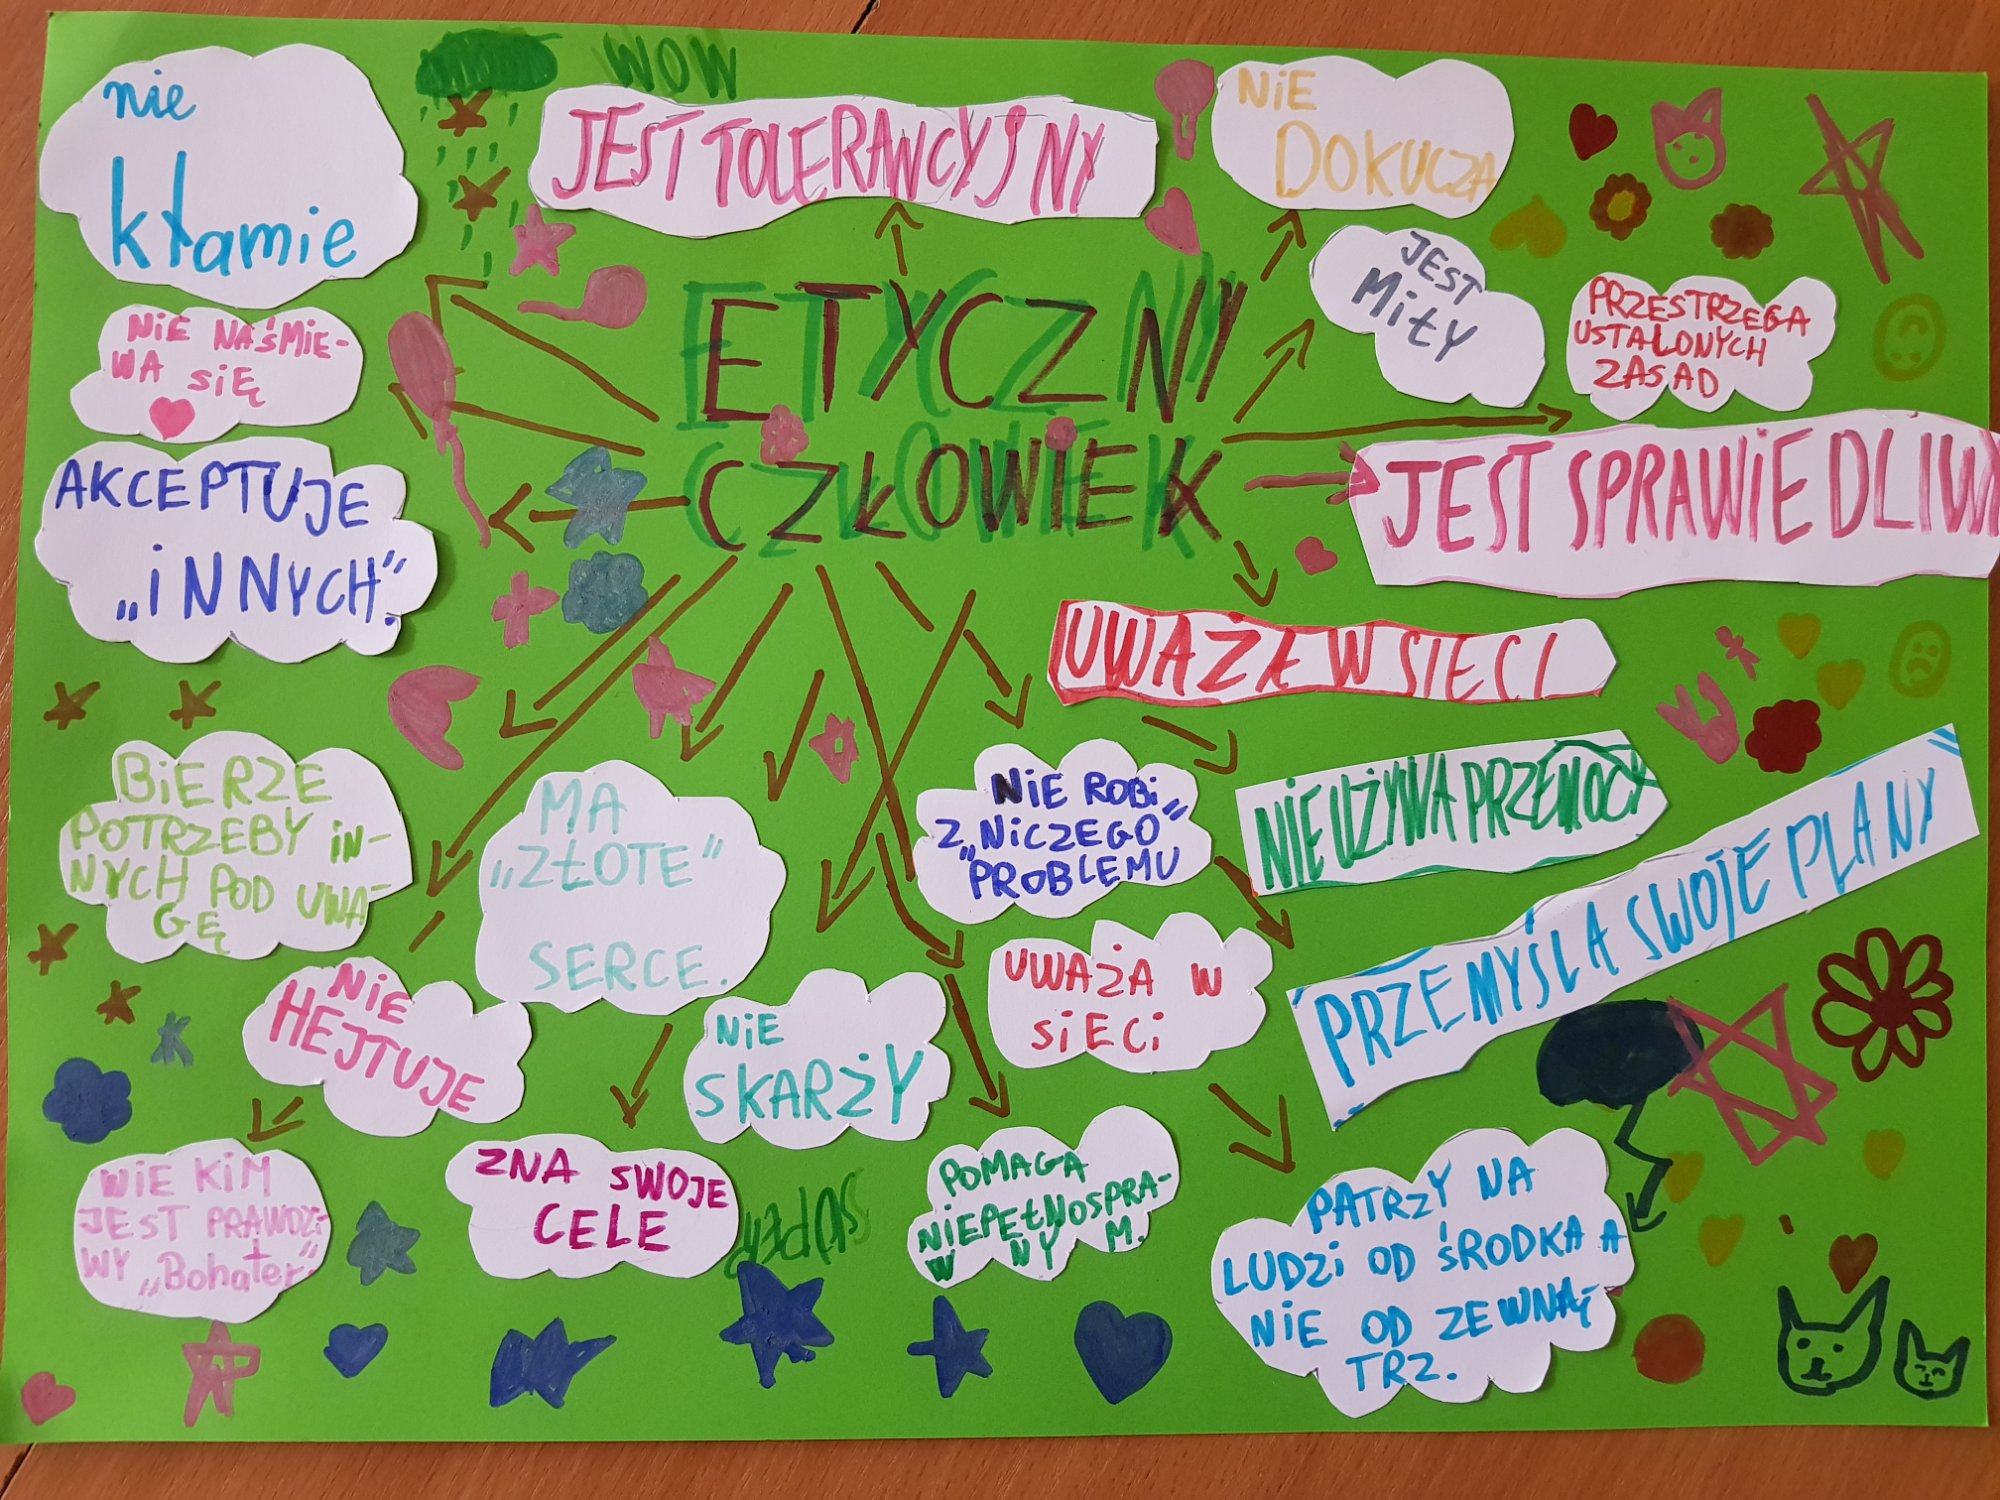 WOW
nie
kłamie
JEST TOLERANCYJNY
NiE
DOKUCZA
JEST
MiŁY
PRZESTRZEGA
USTALONYCH
ZASAD
NiE NAŚMIE-
WA SiĘ
ETYCZNY
CZŁOWIEK
JEST SPRAWiEDLIWY
AKCEPTUJE
„iNNYCH”.
UWAŻA W SIECI
NIE UŻYWA PRZEMOCY
PRZEMYŚLA SWOJE PLANY
BiERZE
POTRZEBY iN-
NYCH POD UWA-
GĘ
MA
„ZŁOTE”
SERCE.
NIE ROBi
Z „NiCZEGO”
PROBLEMU
UWAŻA W
SiECi
NiE
HEJTUJE
NiE
SKARŻY
WiE KiM
JEST PRAWDZi-
WY „Bohater”
ZNA SWOJE
CELE
SUPER
POMAGA
NiEPEŁNOSPRA-
W NY M.
PATRZY NA
LUDZi OD ŚRODKA A
NiE OD ZEWNĄ-
TRZ.